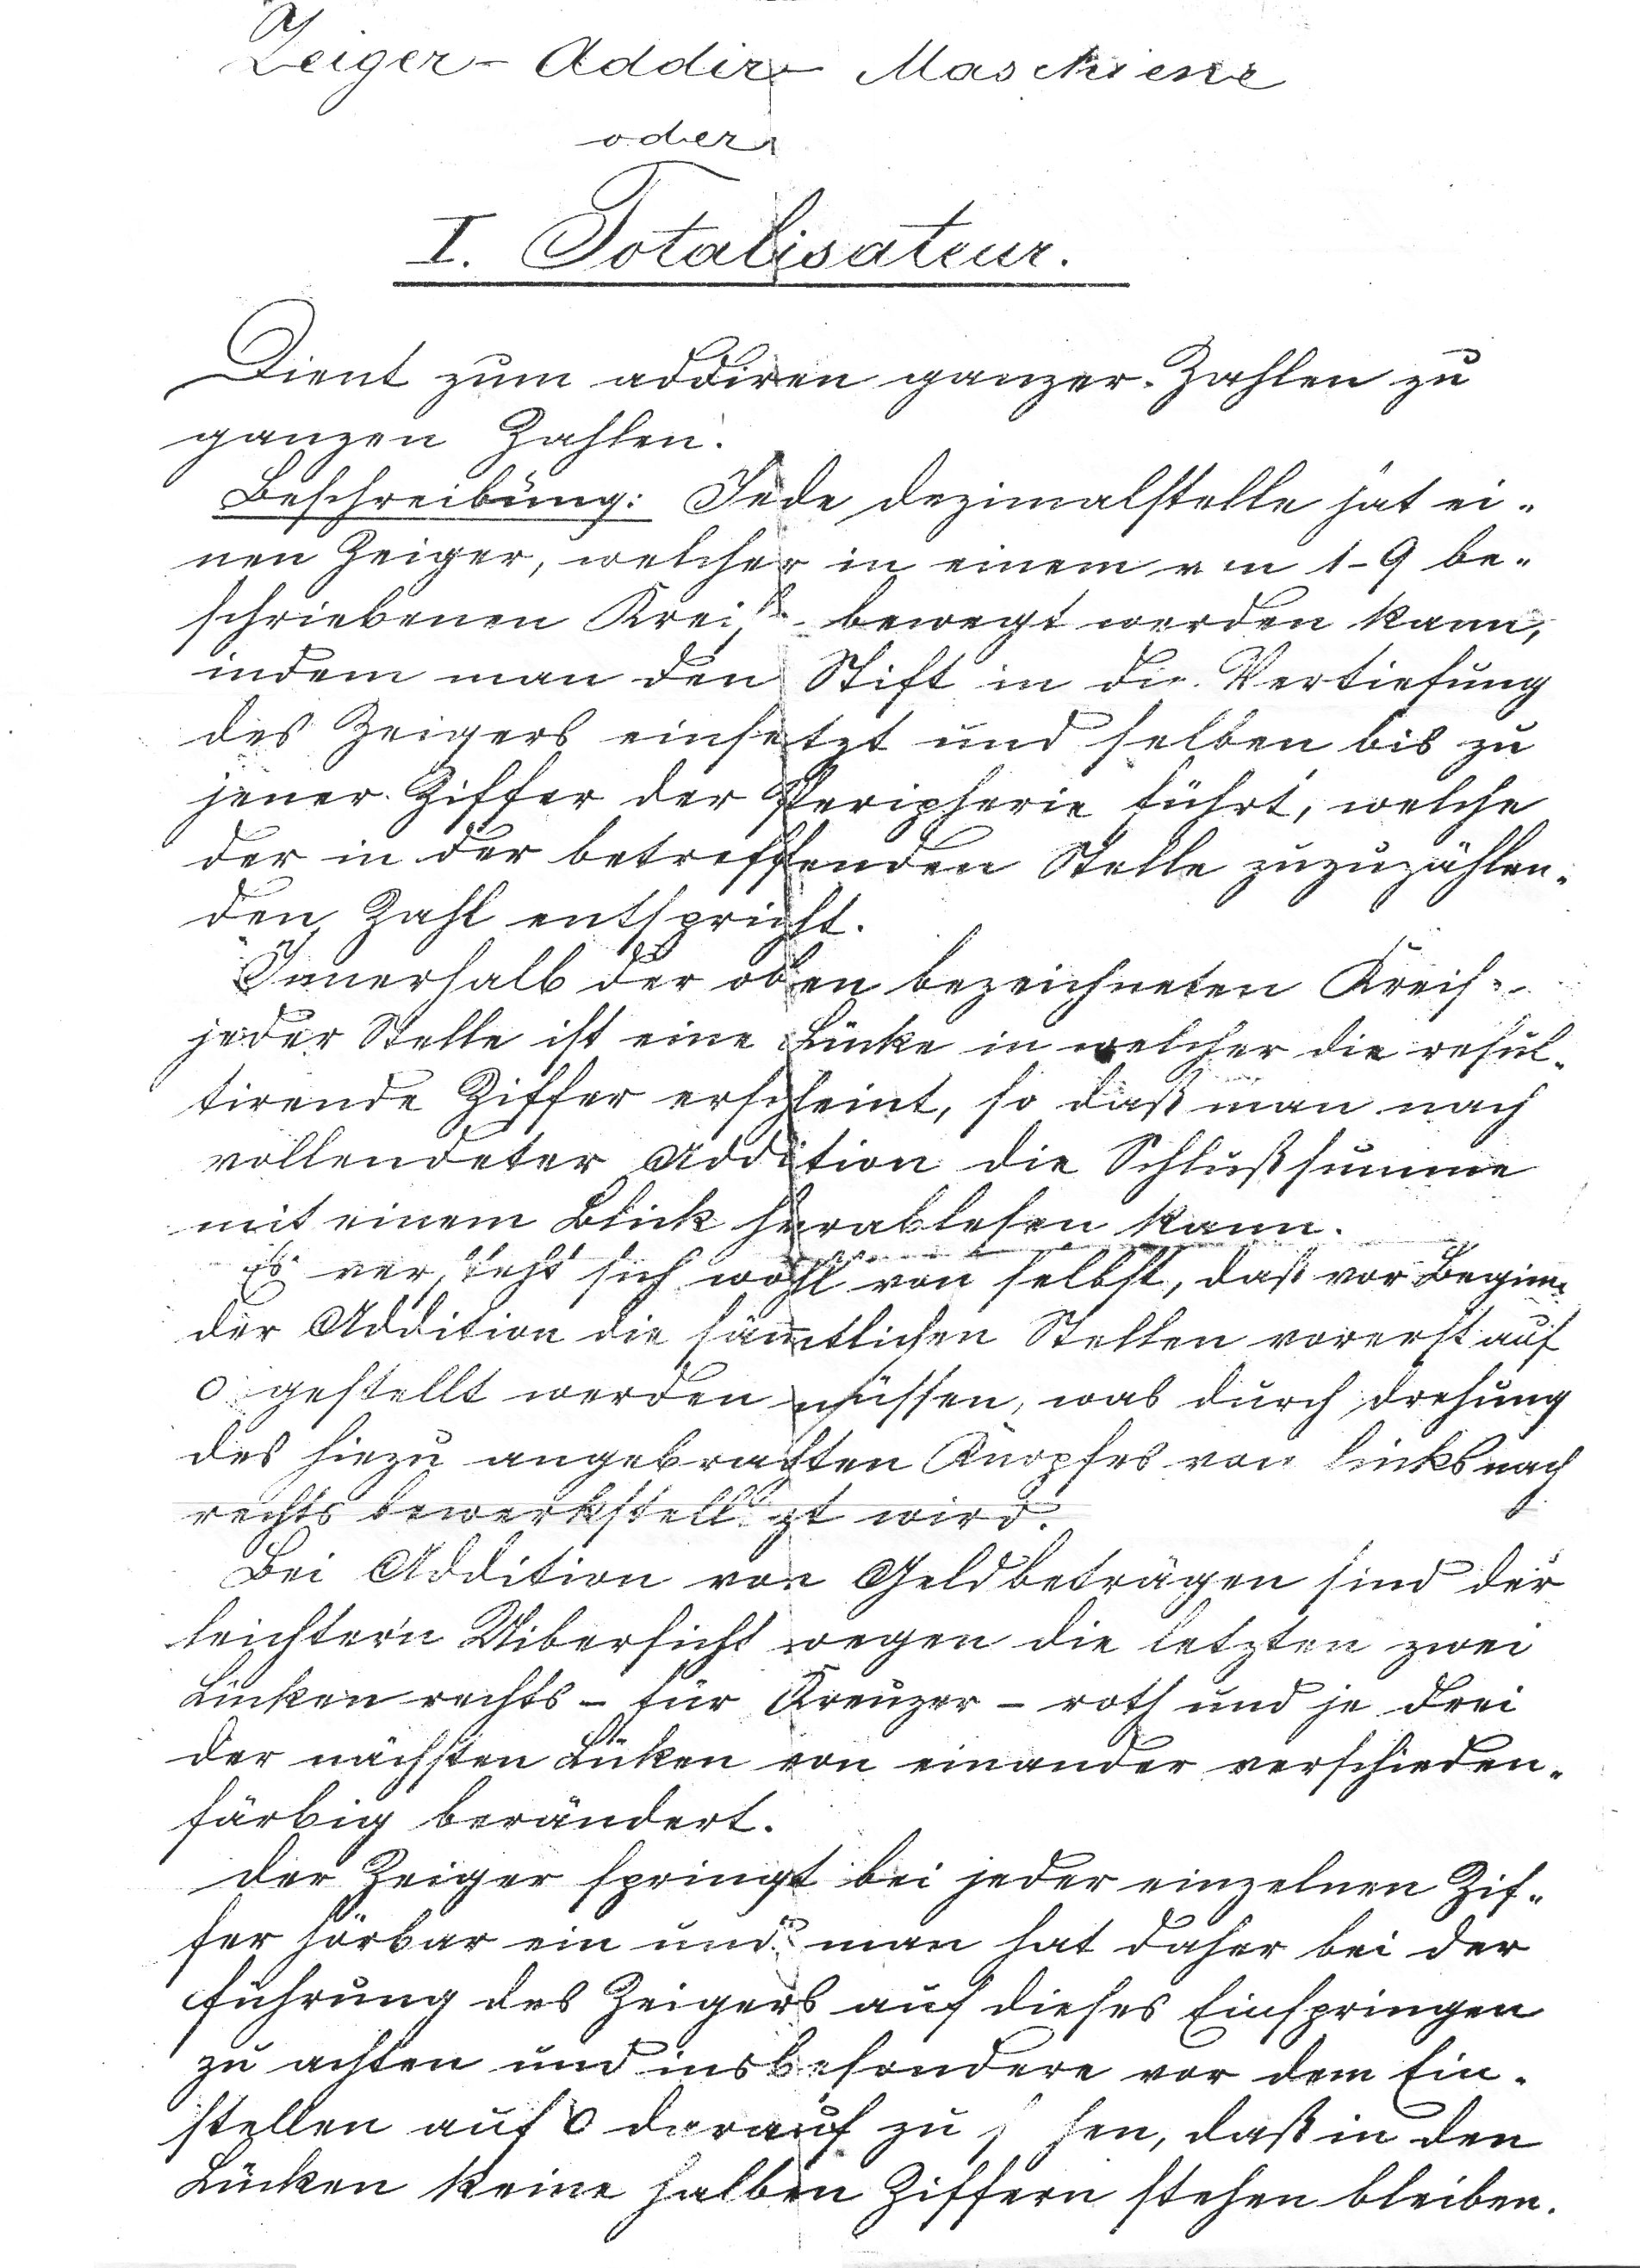 Zeiger-Addir-Maschiene
oder
I. Totalisateur.
Dient zum addiren ganzer Zahlen zu
ganzen Zahlen.
Beschreibung: Jede Dezimalstelle hat ei-
nen Zeiger, welcher in einem von 1-9 be-
schriebenen Kreise bewegt werden kann,
indem man den Stift in die Vertiefung
des Zeigers einsetzt und selben bis zu
jener Ziffer der Peripherie führt, welche
der in der betreffenden Stelle zuzuzählen-
den Zahl entspricht.
Innerhalb der oben bezeichneten Kreise
jeder Stelle ist eine Lücke in welcher die resul-
tirende Ziffer erscheint, so daß man nach
vollendeter Addition die Schlußsumme
mit einem Blick herablesen kann.
Es versteht sich wohl von selbst, daß vor Beginn
der Addition die sämtlichen Stellen vorerst auf
0 gestellt werden müssen, was durch Drehung
des hiezu angebrachten Knopfes von links nach
rechts bewerkstelligt wird.
Bei Addition von Geldbeträgen sind der
leichtern Uibersicht wegen die letzten zwei
Lücken rechts - für Kreuzer - roth und je drei
der nächsten Lücken von einander verschieden-
färbig berändert.
Der Zeiger springt bei jeder einzelnen Zif-
fer hörbar ein und man hat daher bei der
Führung des Zeigers auf dieses Einspringen
zu achten und insbesondere vor dem Ein-
stellen auf 0 darauf zu sehen, daß in den
Lücken keine halben Ziffern stehen bleiben.